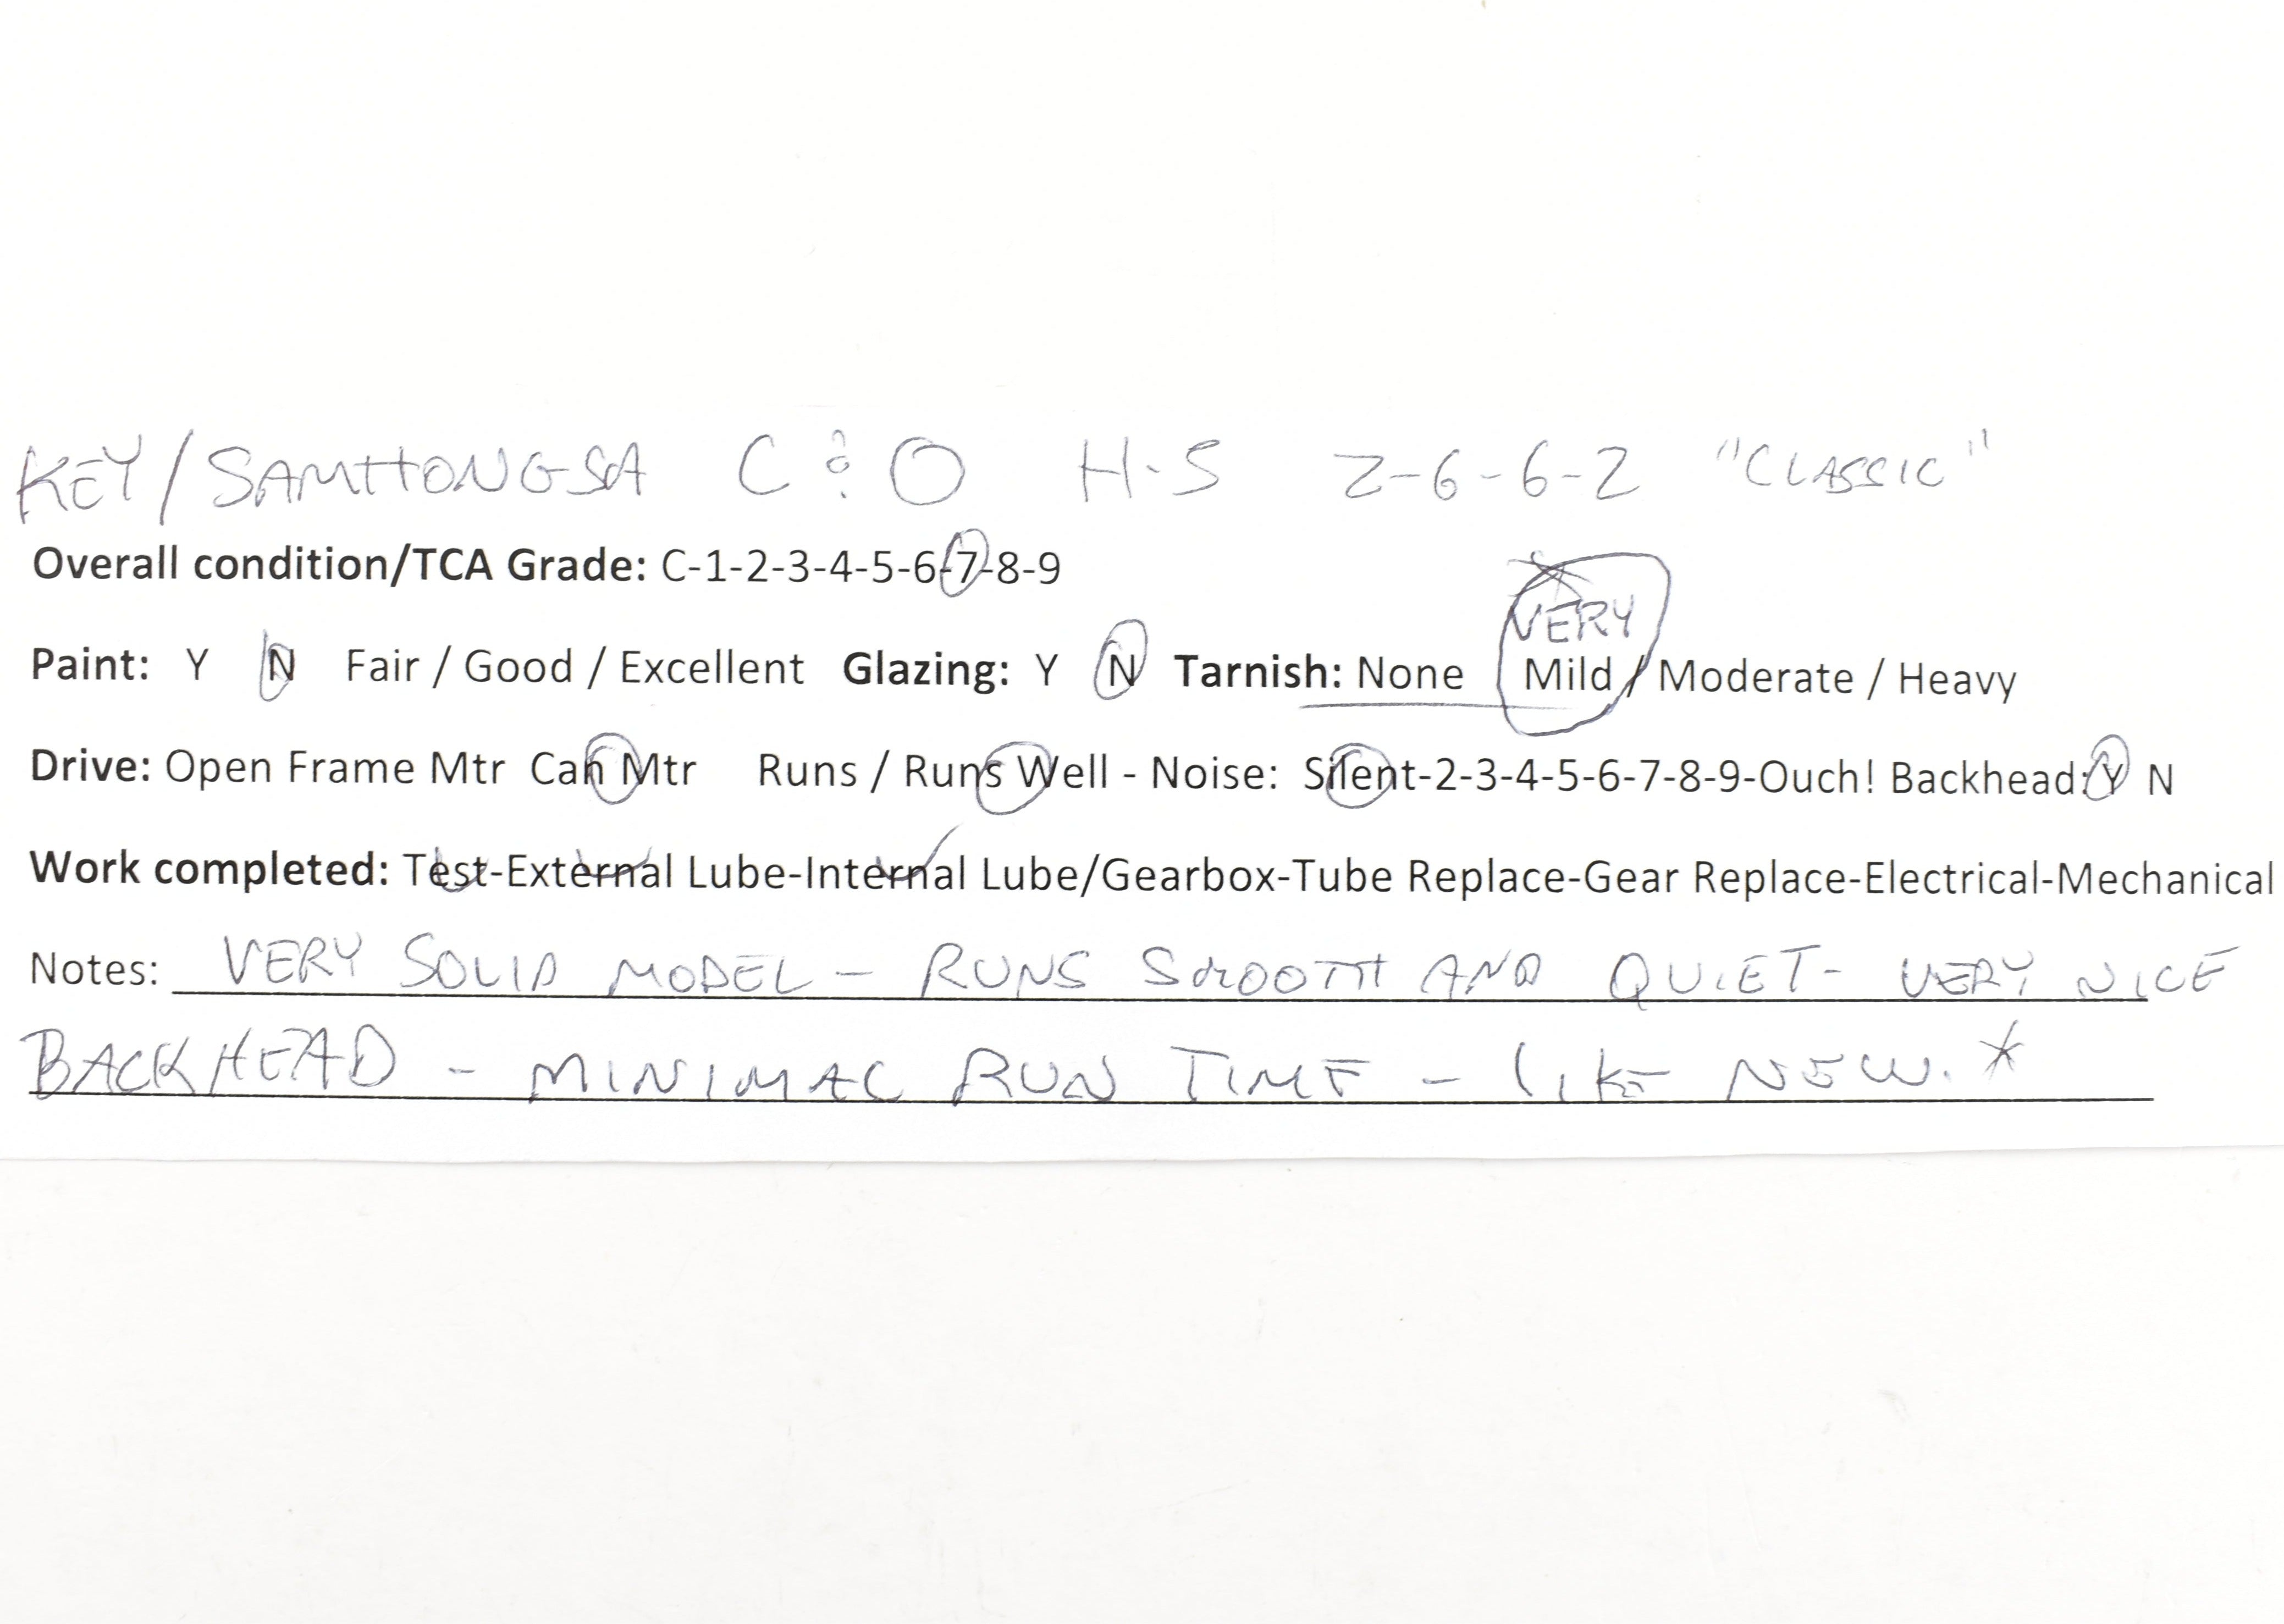 KEY/SAMHONGSA C&O H-5 2-6-6-2 "CLASSIC"
Overall condition/TCA Grade: C-1-2-3-4-5-6-7-8-9
VERY
Paint: Y N Fair / Good / Excellent Glazing: Y N Tarnish: None Mild / Moderate / Heavy
Drive: Open Frame Mtr Can Mtr Runs / Runs Well - Noise: Silent-2-3-4-5-6-7-8-9-Ouch! Backhead: Y N
Work completed: Test-External Lube-Internal Lube/Gearbox-Tube Replace-Gear Replace-Electrical-Mechanical
Notes: VERY SOLID MODEL - RUNS SMOOTH AND QUIET - VERY NICE
BACKHEAD - MINIMAL RUN TIME - LIKE NEW. *